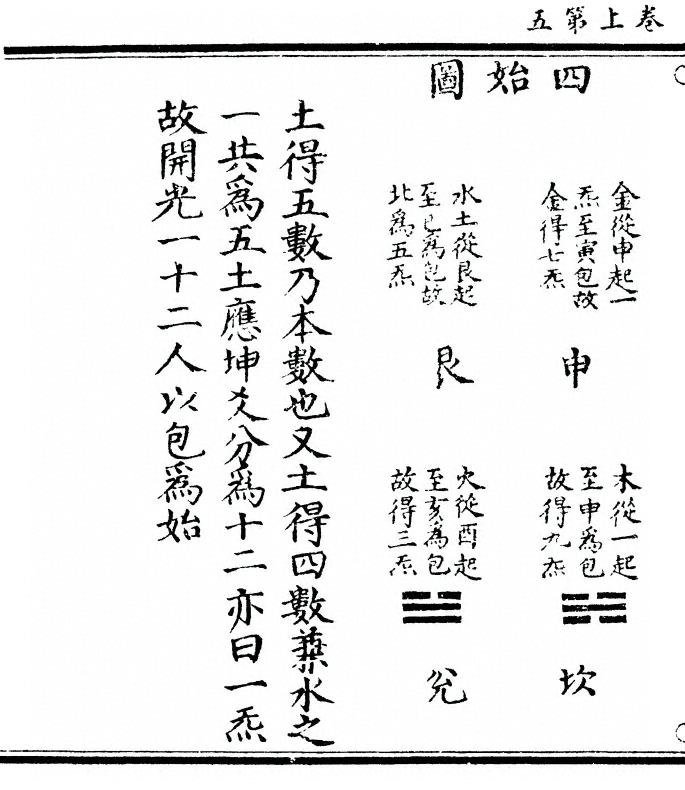 卷上第五
四始圖
金從申起一
炁至寅包故
金得七炁
申
木從一起
至申爲包
故得九炁
坎
水土從艮起
至巳爲包故
北爲五炁
艮
火從酉起
至亥爲包
故得三炁
兌
土得五數乃本數也又土得四數兼水之
一共爲五土應坤爻分爲十二亦曰一炁
故開光一十二人以包爲始